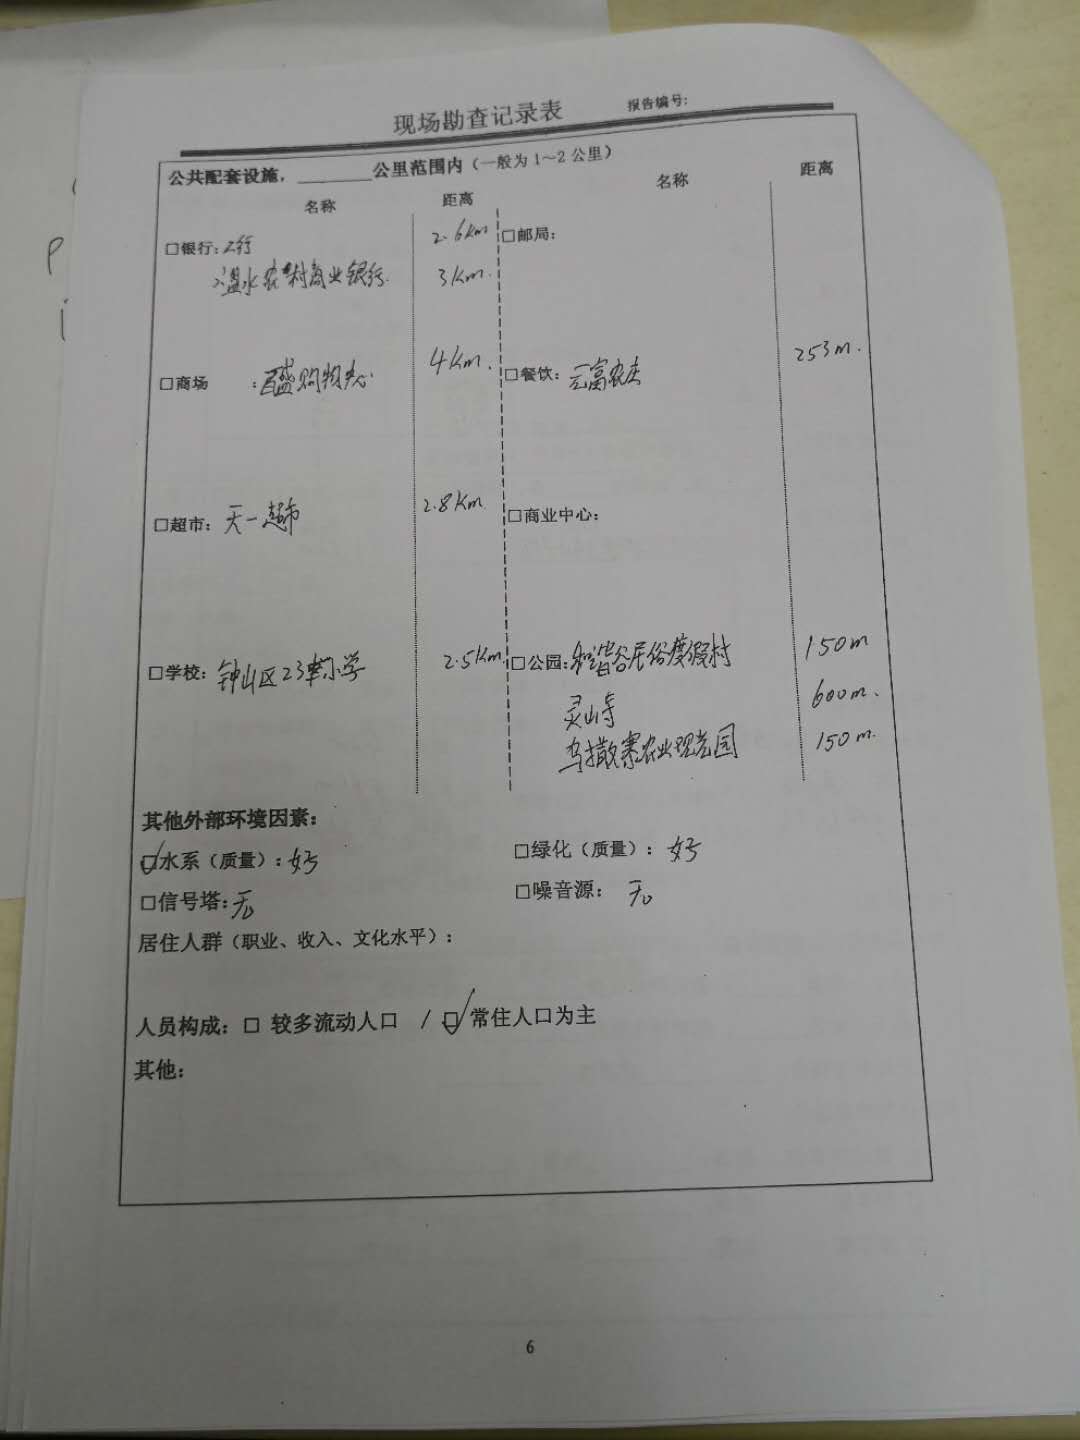 现场勘查记录表 报告编号:
公共配套设施，________公里范围内（一般为1～2公里）
名称 距离 名称 距离
□银行: 工行 2.6km □邮局:
水农村商业银行 3km.
□商场 : 百盛购物中心 4km. □餐饮: 云富农庄 253m.
□超市: 天一超市 2.8km □商业中心:
□学校: 钟山区23小学 2.5km □公园: 和谐谷民俗度假村 150m
灵山寺 600m.
乌撒寨农业观光园 150m.
其他外部环境因素:
☑水系（质量）: 好 □绿化（质量）: 好
□信号塔: 无 □噪音源: 无
居住人群（职业、收入、文化水平）:
人员构成: □ 较多流动人口 / ☑ 常住人口为主
其他:
6